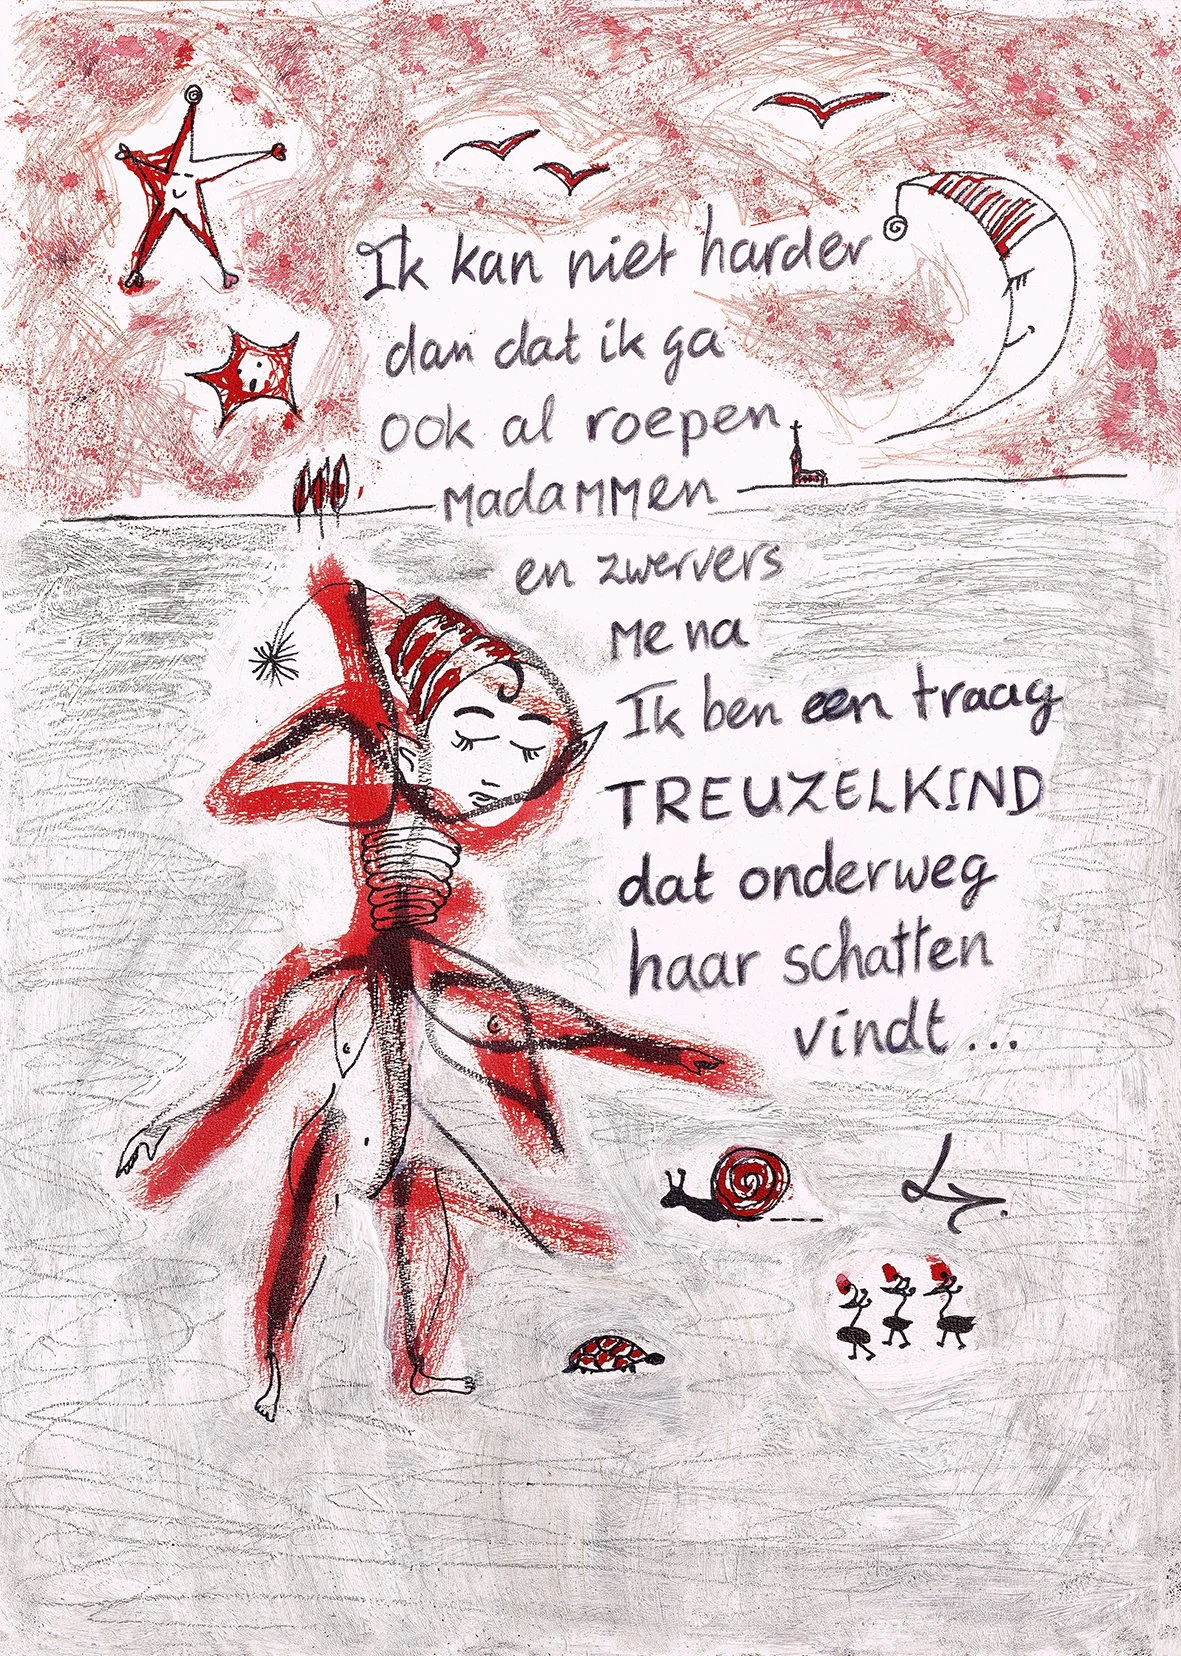 Ik kan niet harder
dan dat ik ga
ook al roepen
MadaMMen
en zwervers
Me na
Ik ben een traag
TREUZELKIND
dat onderweg
haar schatten
vindt...